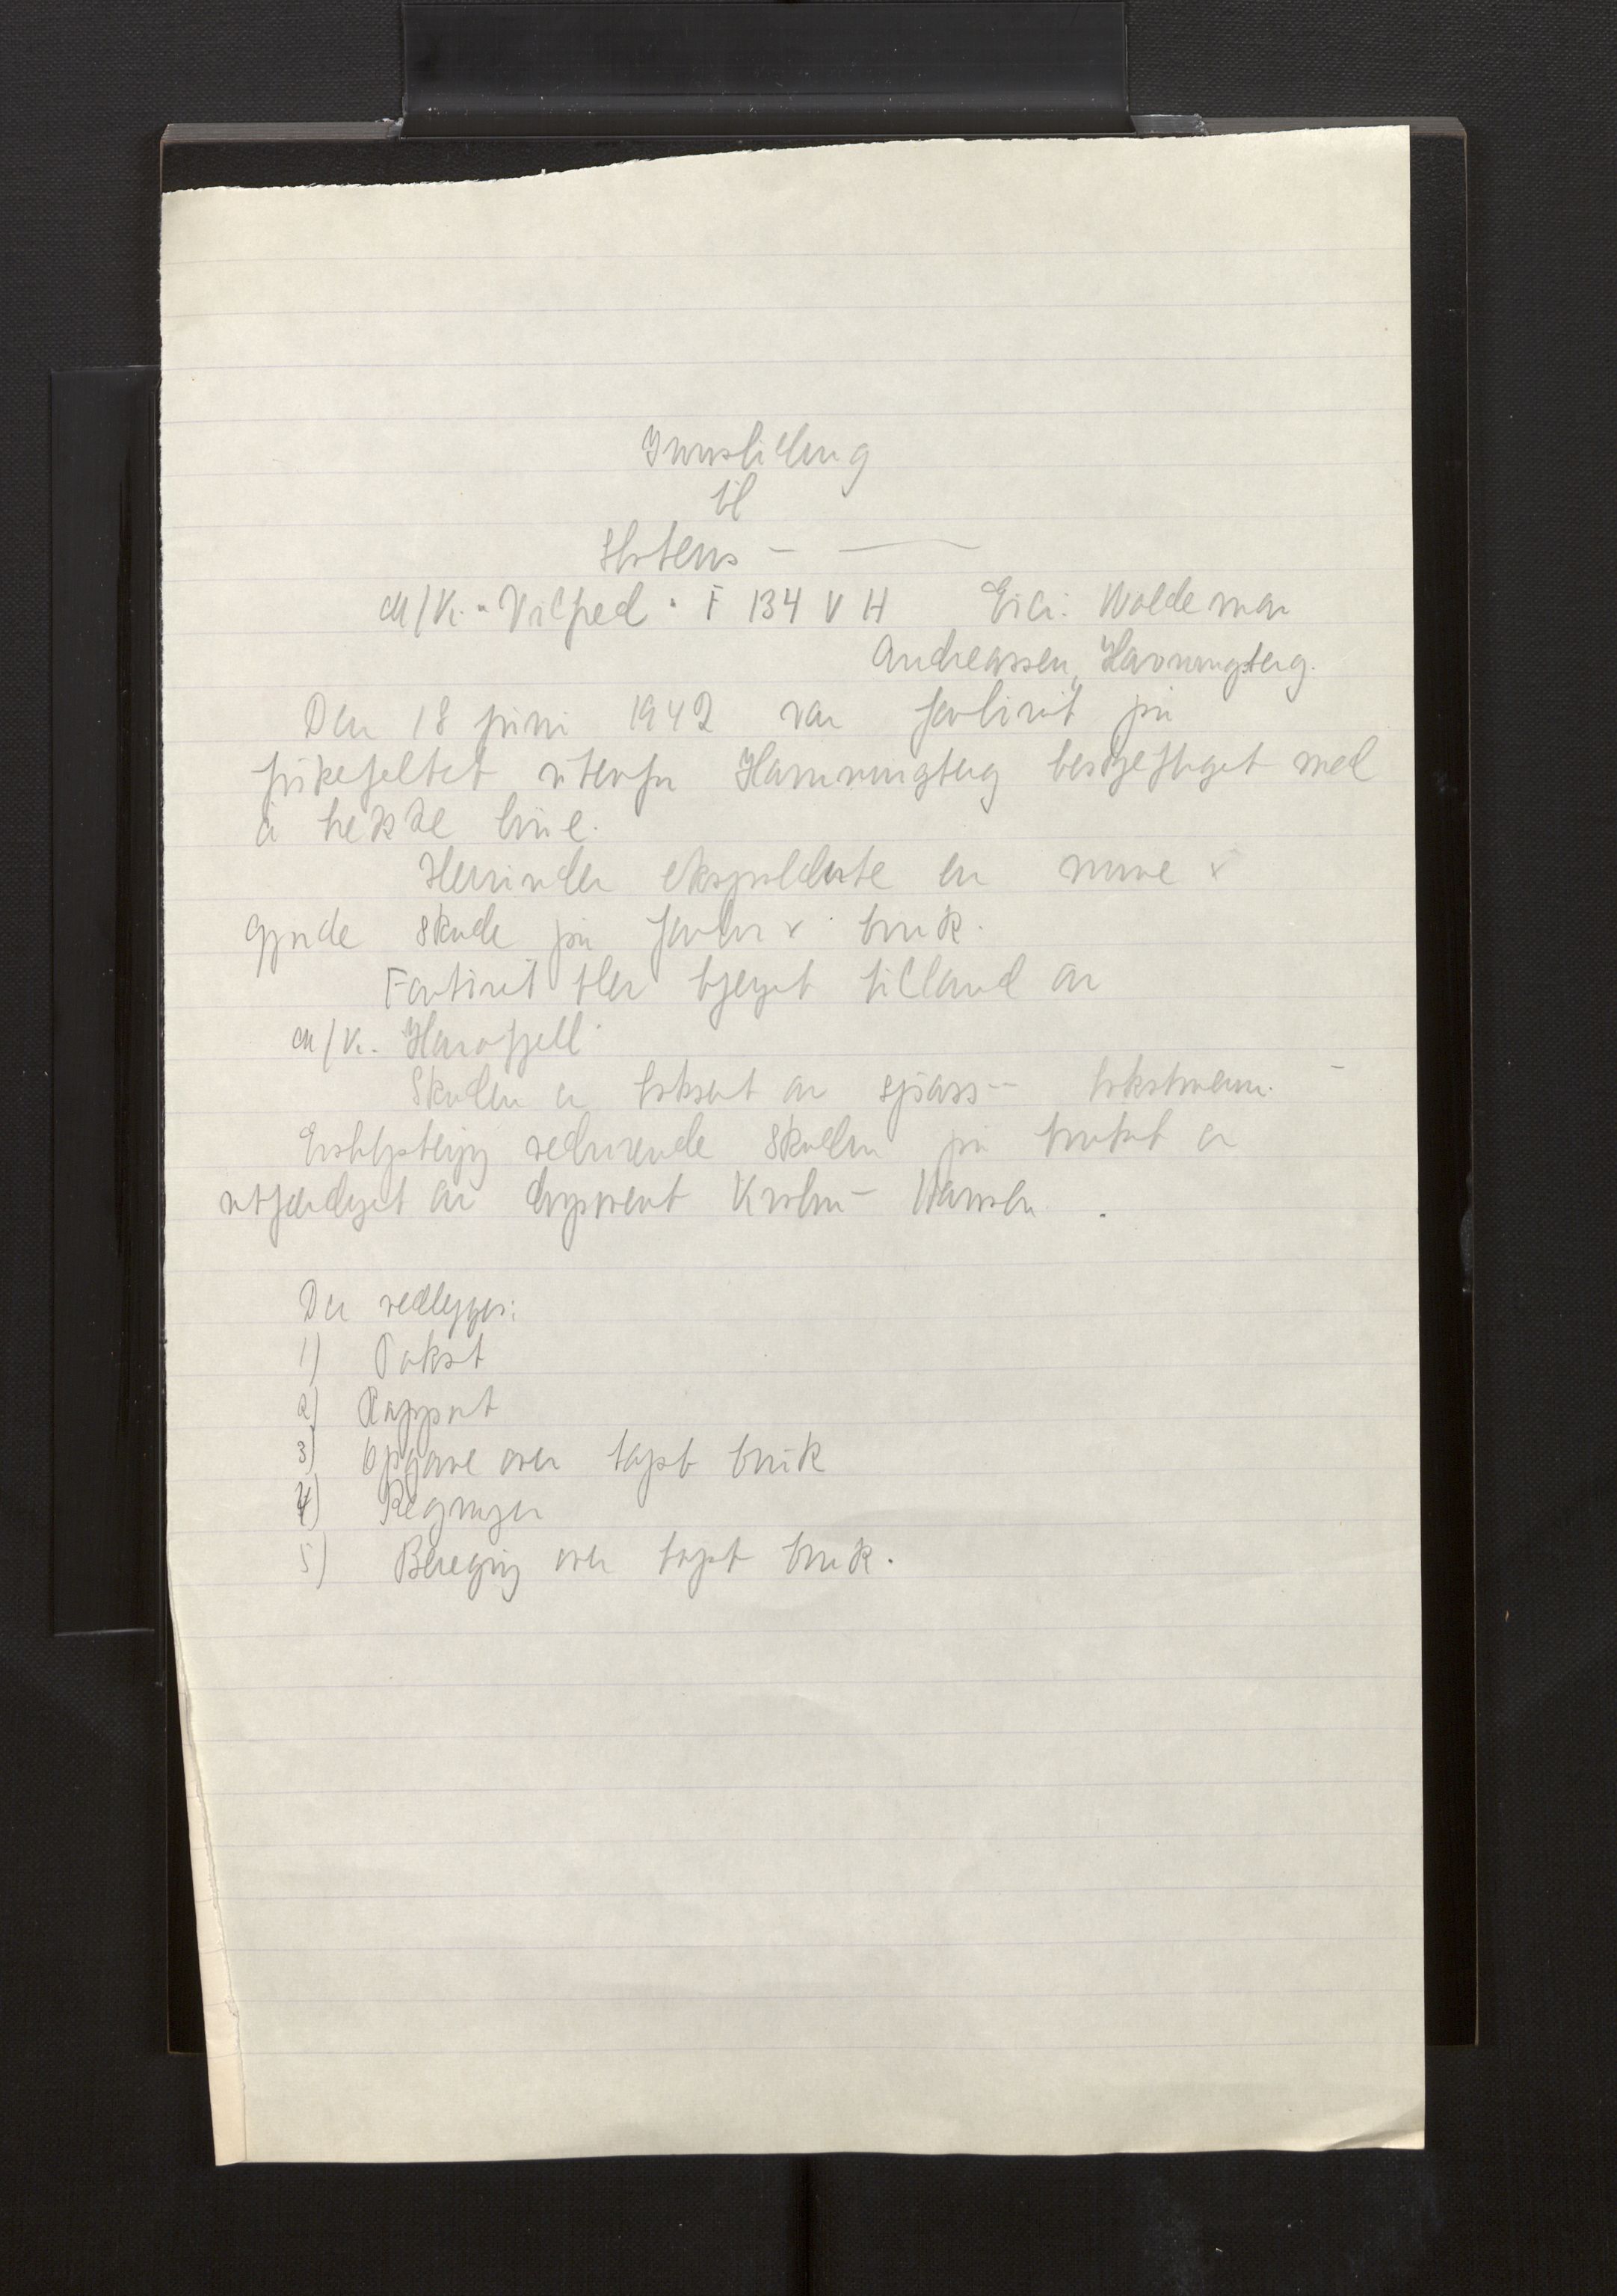 Innstilling
til
Statens —
M/K. "Vilfred" F 134 V H Eier: Waldemar
Andreassen, Havningberg.
Den 18 juni 1942 var fartøiet på
fiskefeltet utenfor Havningberg beskjeftiget med
å trekke line.
Herunder eksploderte en mine &
gjorde skade på farton & bruk.
Fartøiet blev bjerget til land av
M/K. Havafjell
Skaden er taksert av sjøass- takstmenn.
vedrørende skaden på bruket er
utferdiget av disponent Krohn-Hansen.
Der vedlegges:
1) Takst
2) Rapport
3) Opgave over tapt bruk
4) Regninger
5) Beregning over tapt bruk.